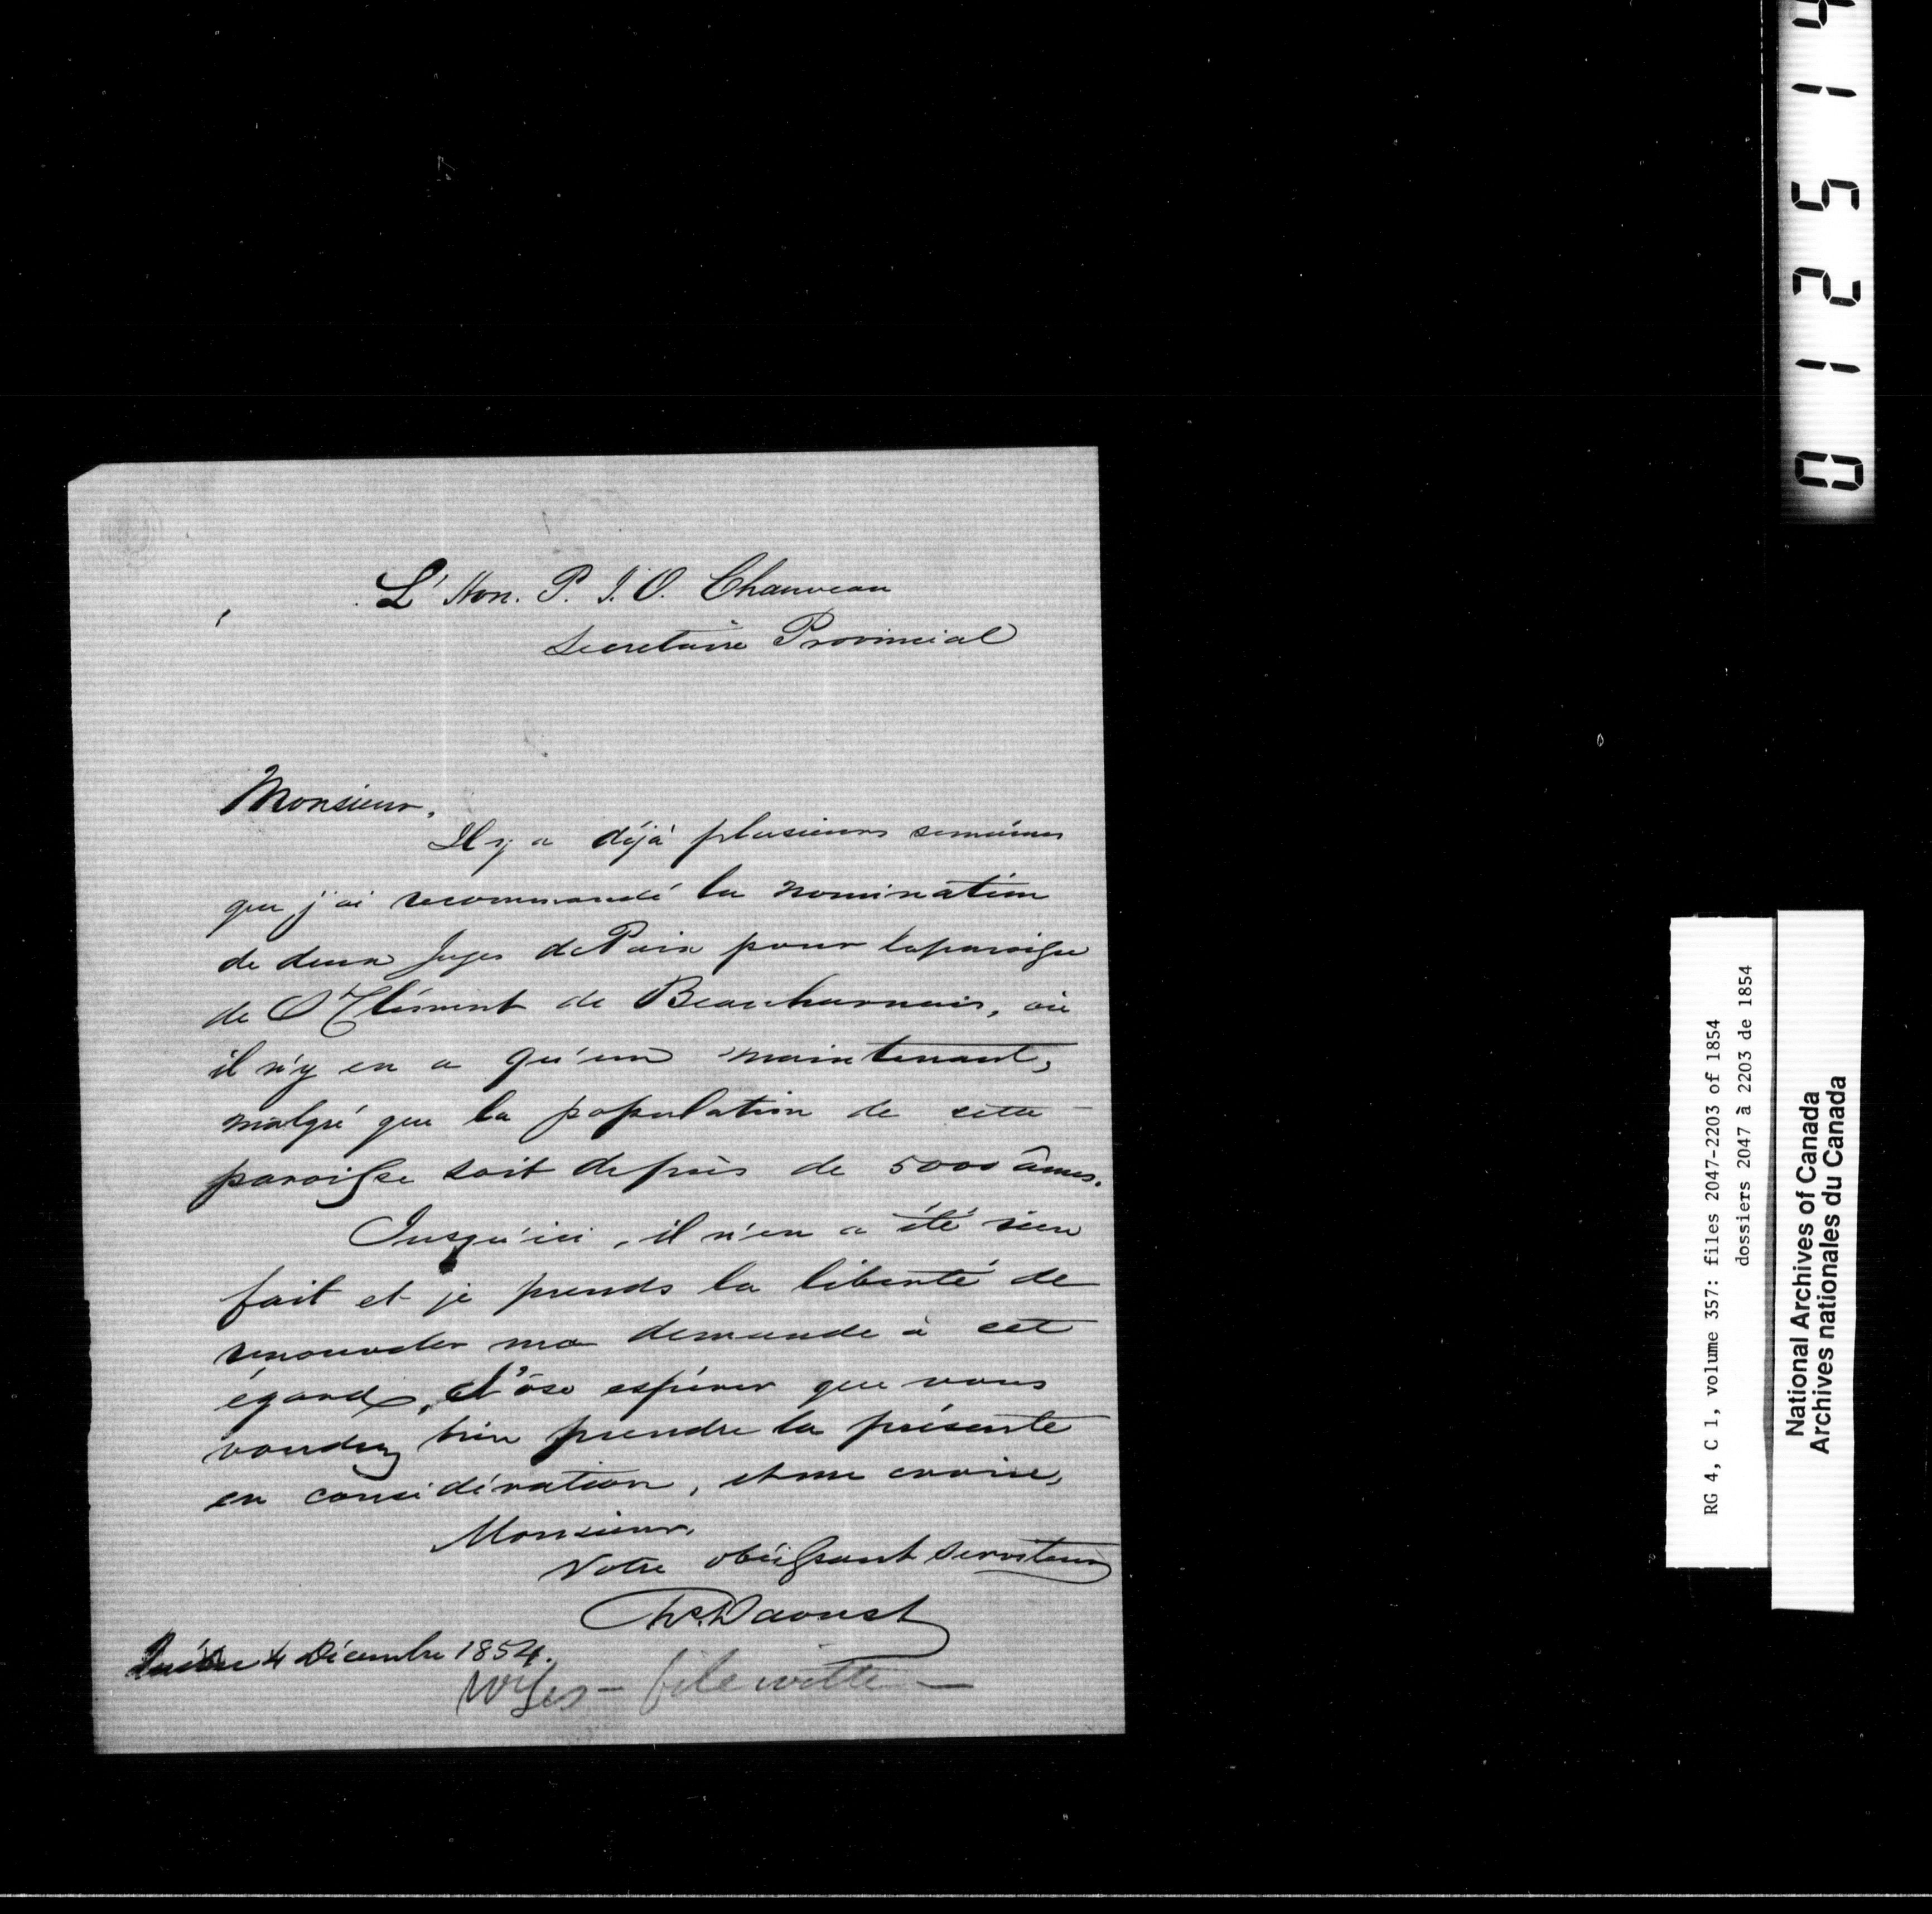 L'Hon. P. J. O. Chauveau
Secretaire Provincial
Monsieur,
Il y a déjà plusieurs semaines
que j'ai recommandé la nomination
de deux Juges de Paix pour la paroisse
de St Clément de Beauharnais, où
il n'y en a qu'un maintenant,
malgré que la population de cette
paroisse soit de près de 5000 âmes.
Jusqu'ici, il n'en a été rien
fait et je prends la liberté de
renouveler ma demande à cet
égard. J'ôse espérer que vous
voudrez bien prendre la présente
en considération, et me croire,
Monsieur,
Votre obéissant serviteur
Chs. Daoust
Québec 4 Décembre 1854.
file with
0 1 2 5 1 4
RG 4, C 1, volume 357: files 2047-2203 of 1854
dossiers 2047 à 2203 de 1854
National Archives of Canada
Archives nationales du Canada